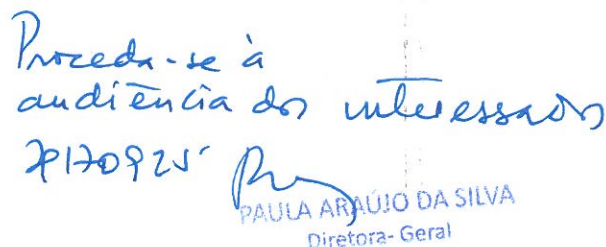 Proceda-se à
audiência dos interessados
20170925
PAULA ARAÚJO DA SILVA
Diretora-Geral